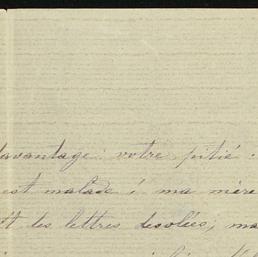 davantage votre pitié :
est malade ; ma mère
les lettres desolées, ma